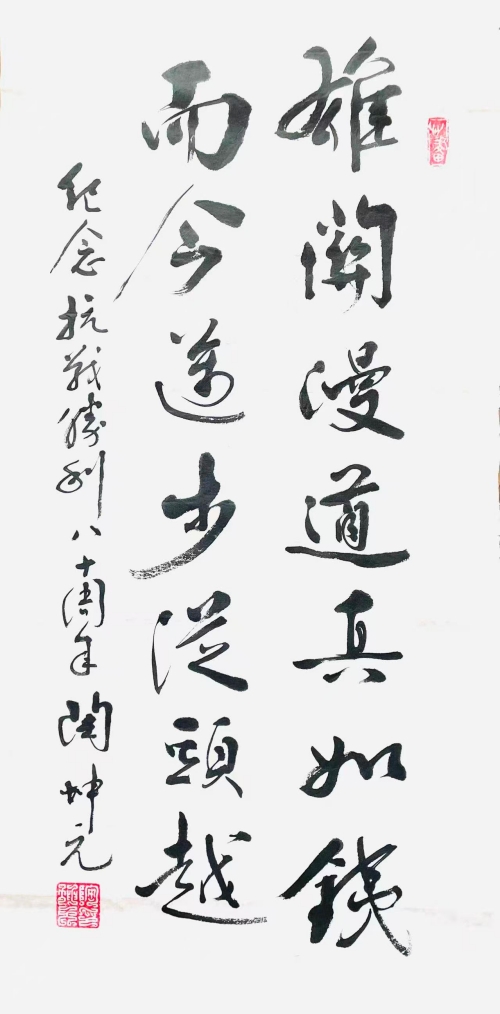 雄關漫道真如銕
而今邁步從頭越
紀念抗戰勝利八十周年 陶坤元